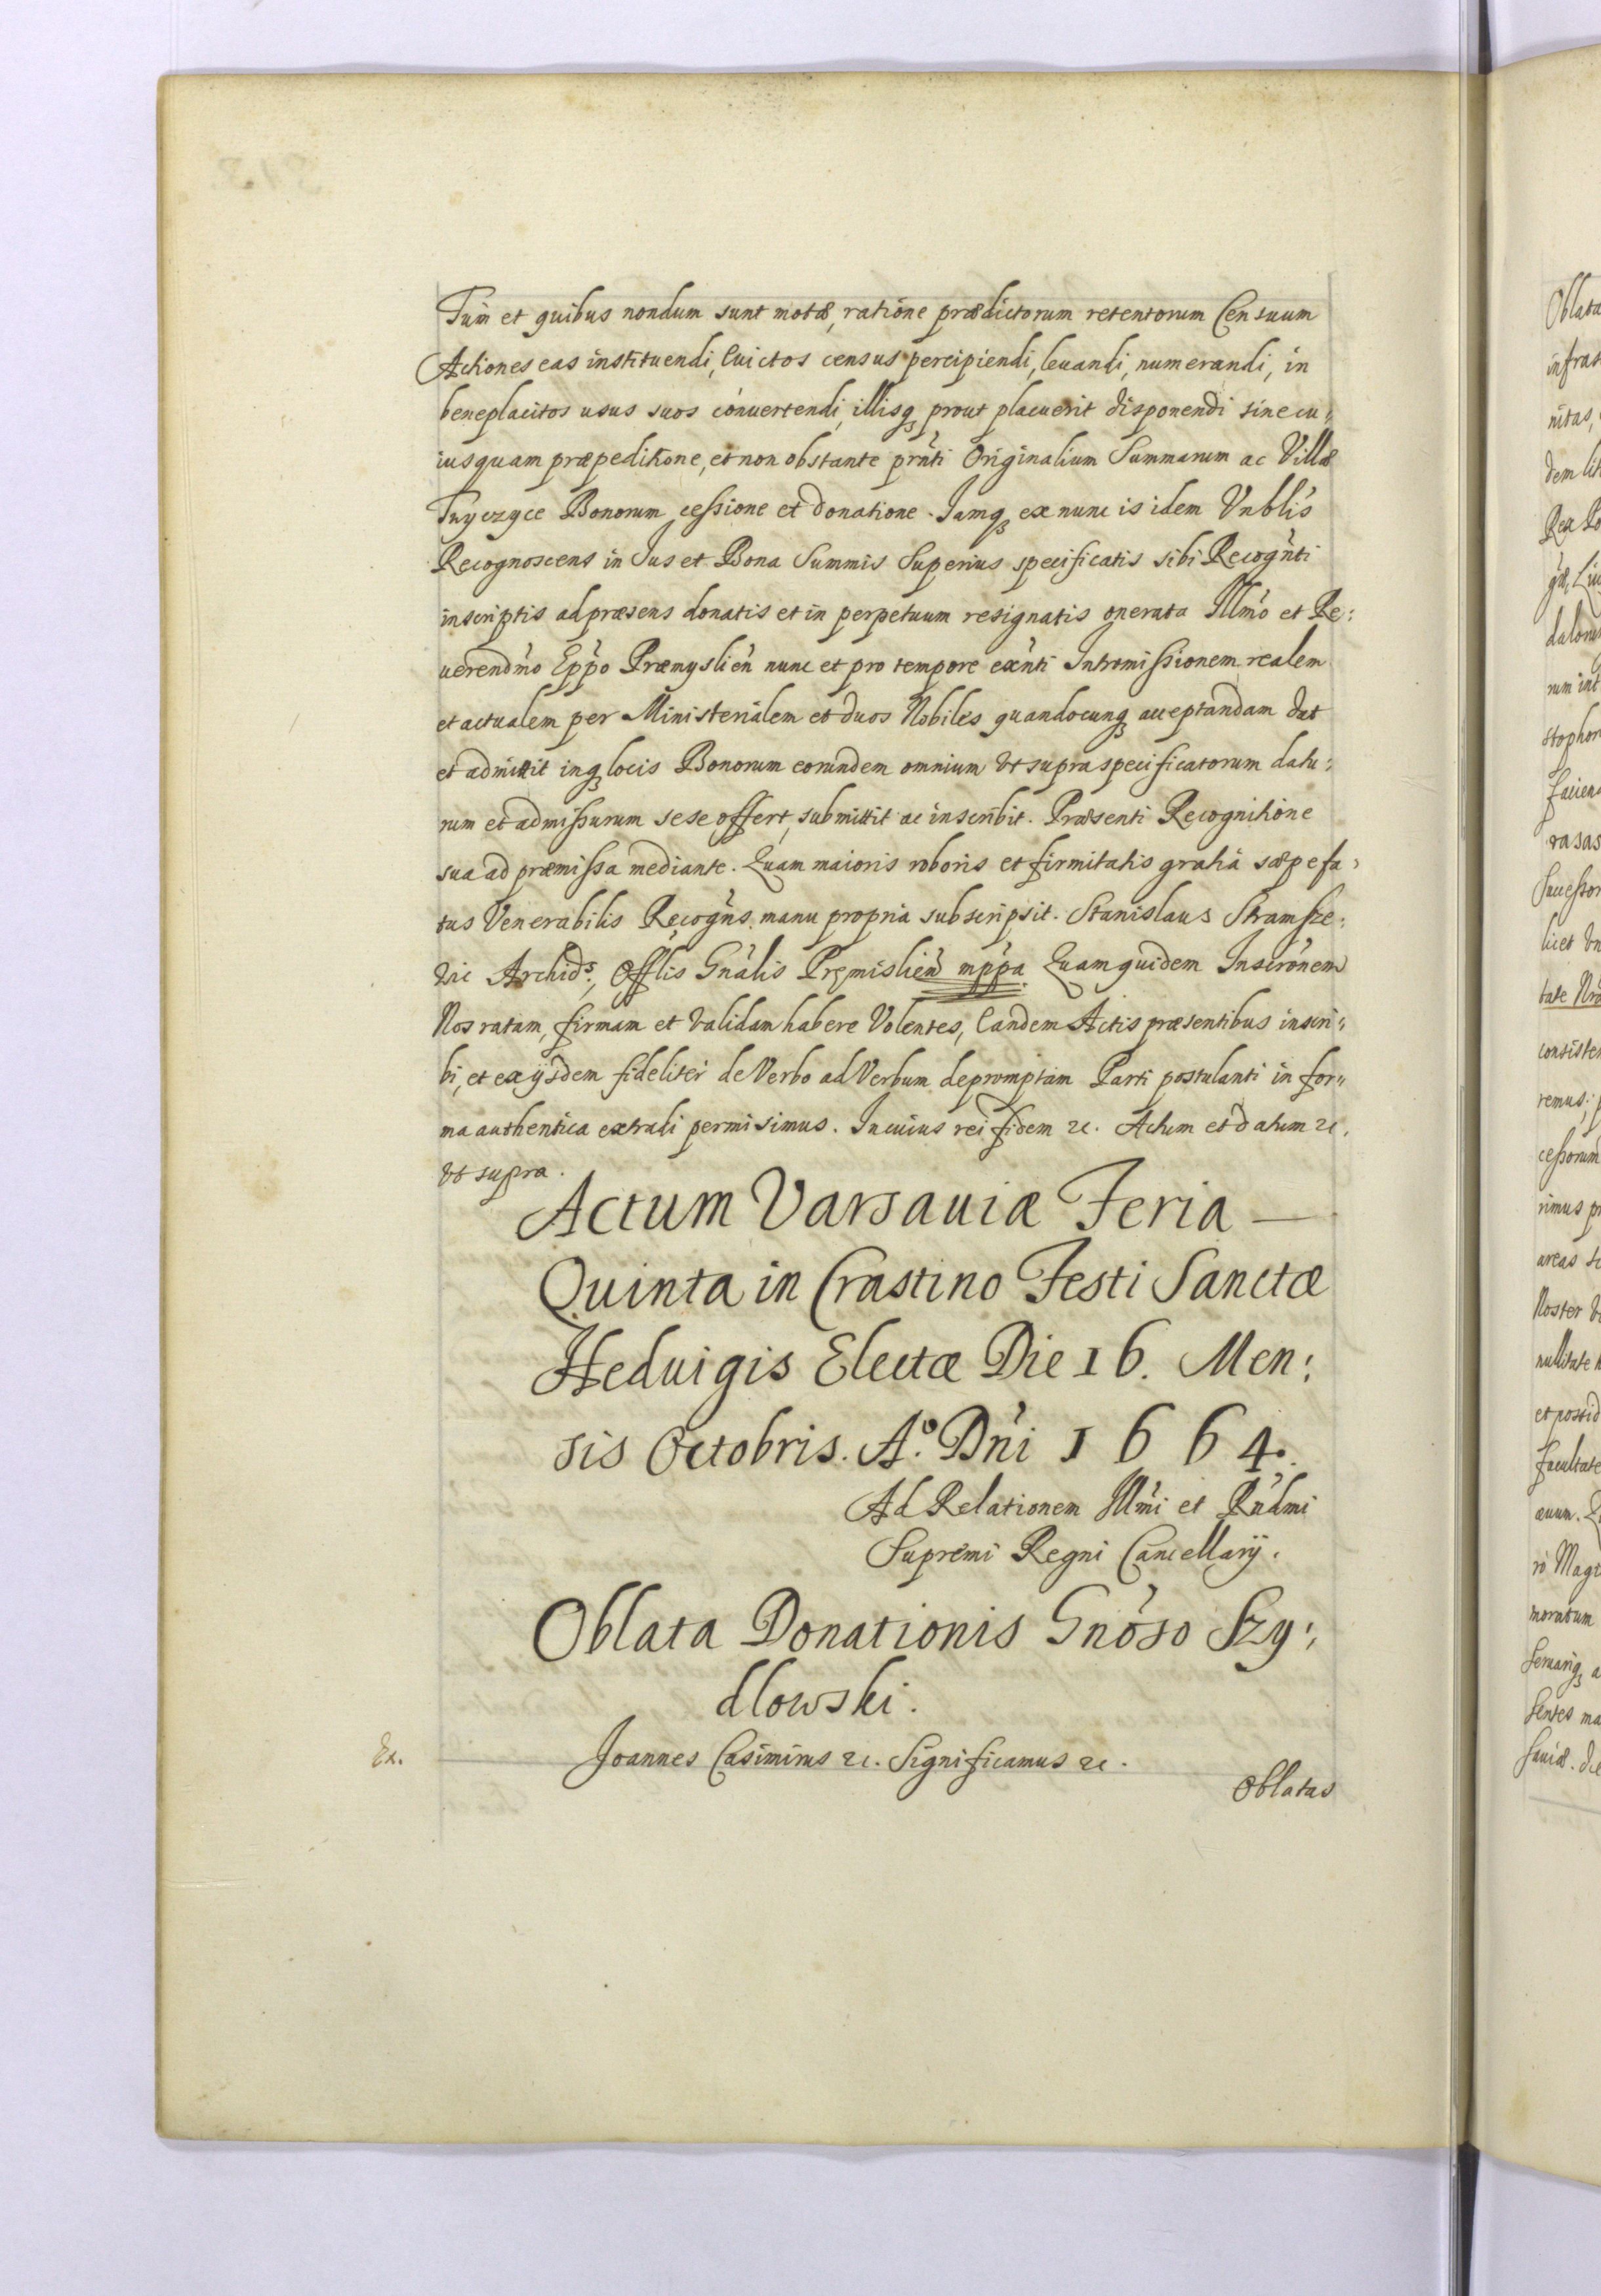 Tum et quibus nondum sunt motæ, ratione prædictorum retentorum Censuum
Actiones eas instituendi, Euictos census percipiendi, leuandi, numerandi, in
beneplacitos usus suos conuertendi, illisq prout placuerit disponendi sine cu:
iusquam præpeditione, et non obstante prñti Originalium Summarum ac Villæ
Tuyczyce Bonorum cessione et donatione. Iamq ex nunc is idem Vnblis
Recognoscens in Jus et Bona Summis Superius specificatis sibi Recogñti
inscriptis ad præsens donatis et in perpetuum resignatis onerata Illmo et Re:
uerendmo Eppo Præmyslien nunc et pro tempore exñti Intromissionem realem
et actualem per Ministerialem et duos Nobiles quandocunq acceptandam dat
et admittit inq locis Bonorum eorundem omnium vt supra specificatorum datu:
rum et admissurum sese offert, submittit ac inscribit. Præsenti Recognitione
sua ad præmissa mediante. Quam maioris roboris et firmitatis gratia sæpefa:
tus Venerabilis Recogñs manu propria subscripsit. Stanislaus Stramsze:
vic Archids, Offlis Gnalis Premislien mppa Quam quidem Inscronem
Nos ratam, firmam et validam habere Volentes, Eandem Actis præsentibus inscri:
bi, et ex ijsdem fideliter de Verbo ad Verbum depromptam Parti postulanti in for:
ma authentica extradi permisimus. In cuius rei fidem &c. Actum et datum &c.
vt supra.
Actum Varsauiæ Feria —
Quinta in Crastino Festi Sanctæ
Heduigis Electæ Die 16. Men:
sis Octobris. Aº. Dñi 1664.
Ad Relationem Illmi et Rndmi
Supremi Regni Cancellarij.
Oblata Donationis Gnoso Szy:
dlowski.
Ex.
Joannes Casimirus &c. Significamus &c.
Oblatas